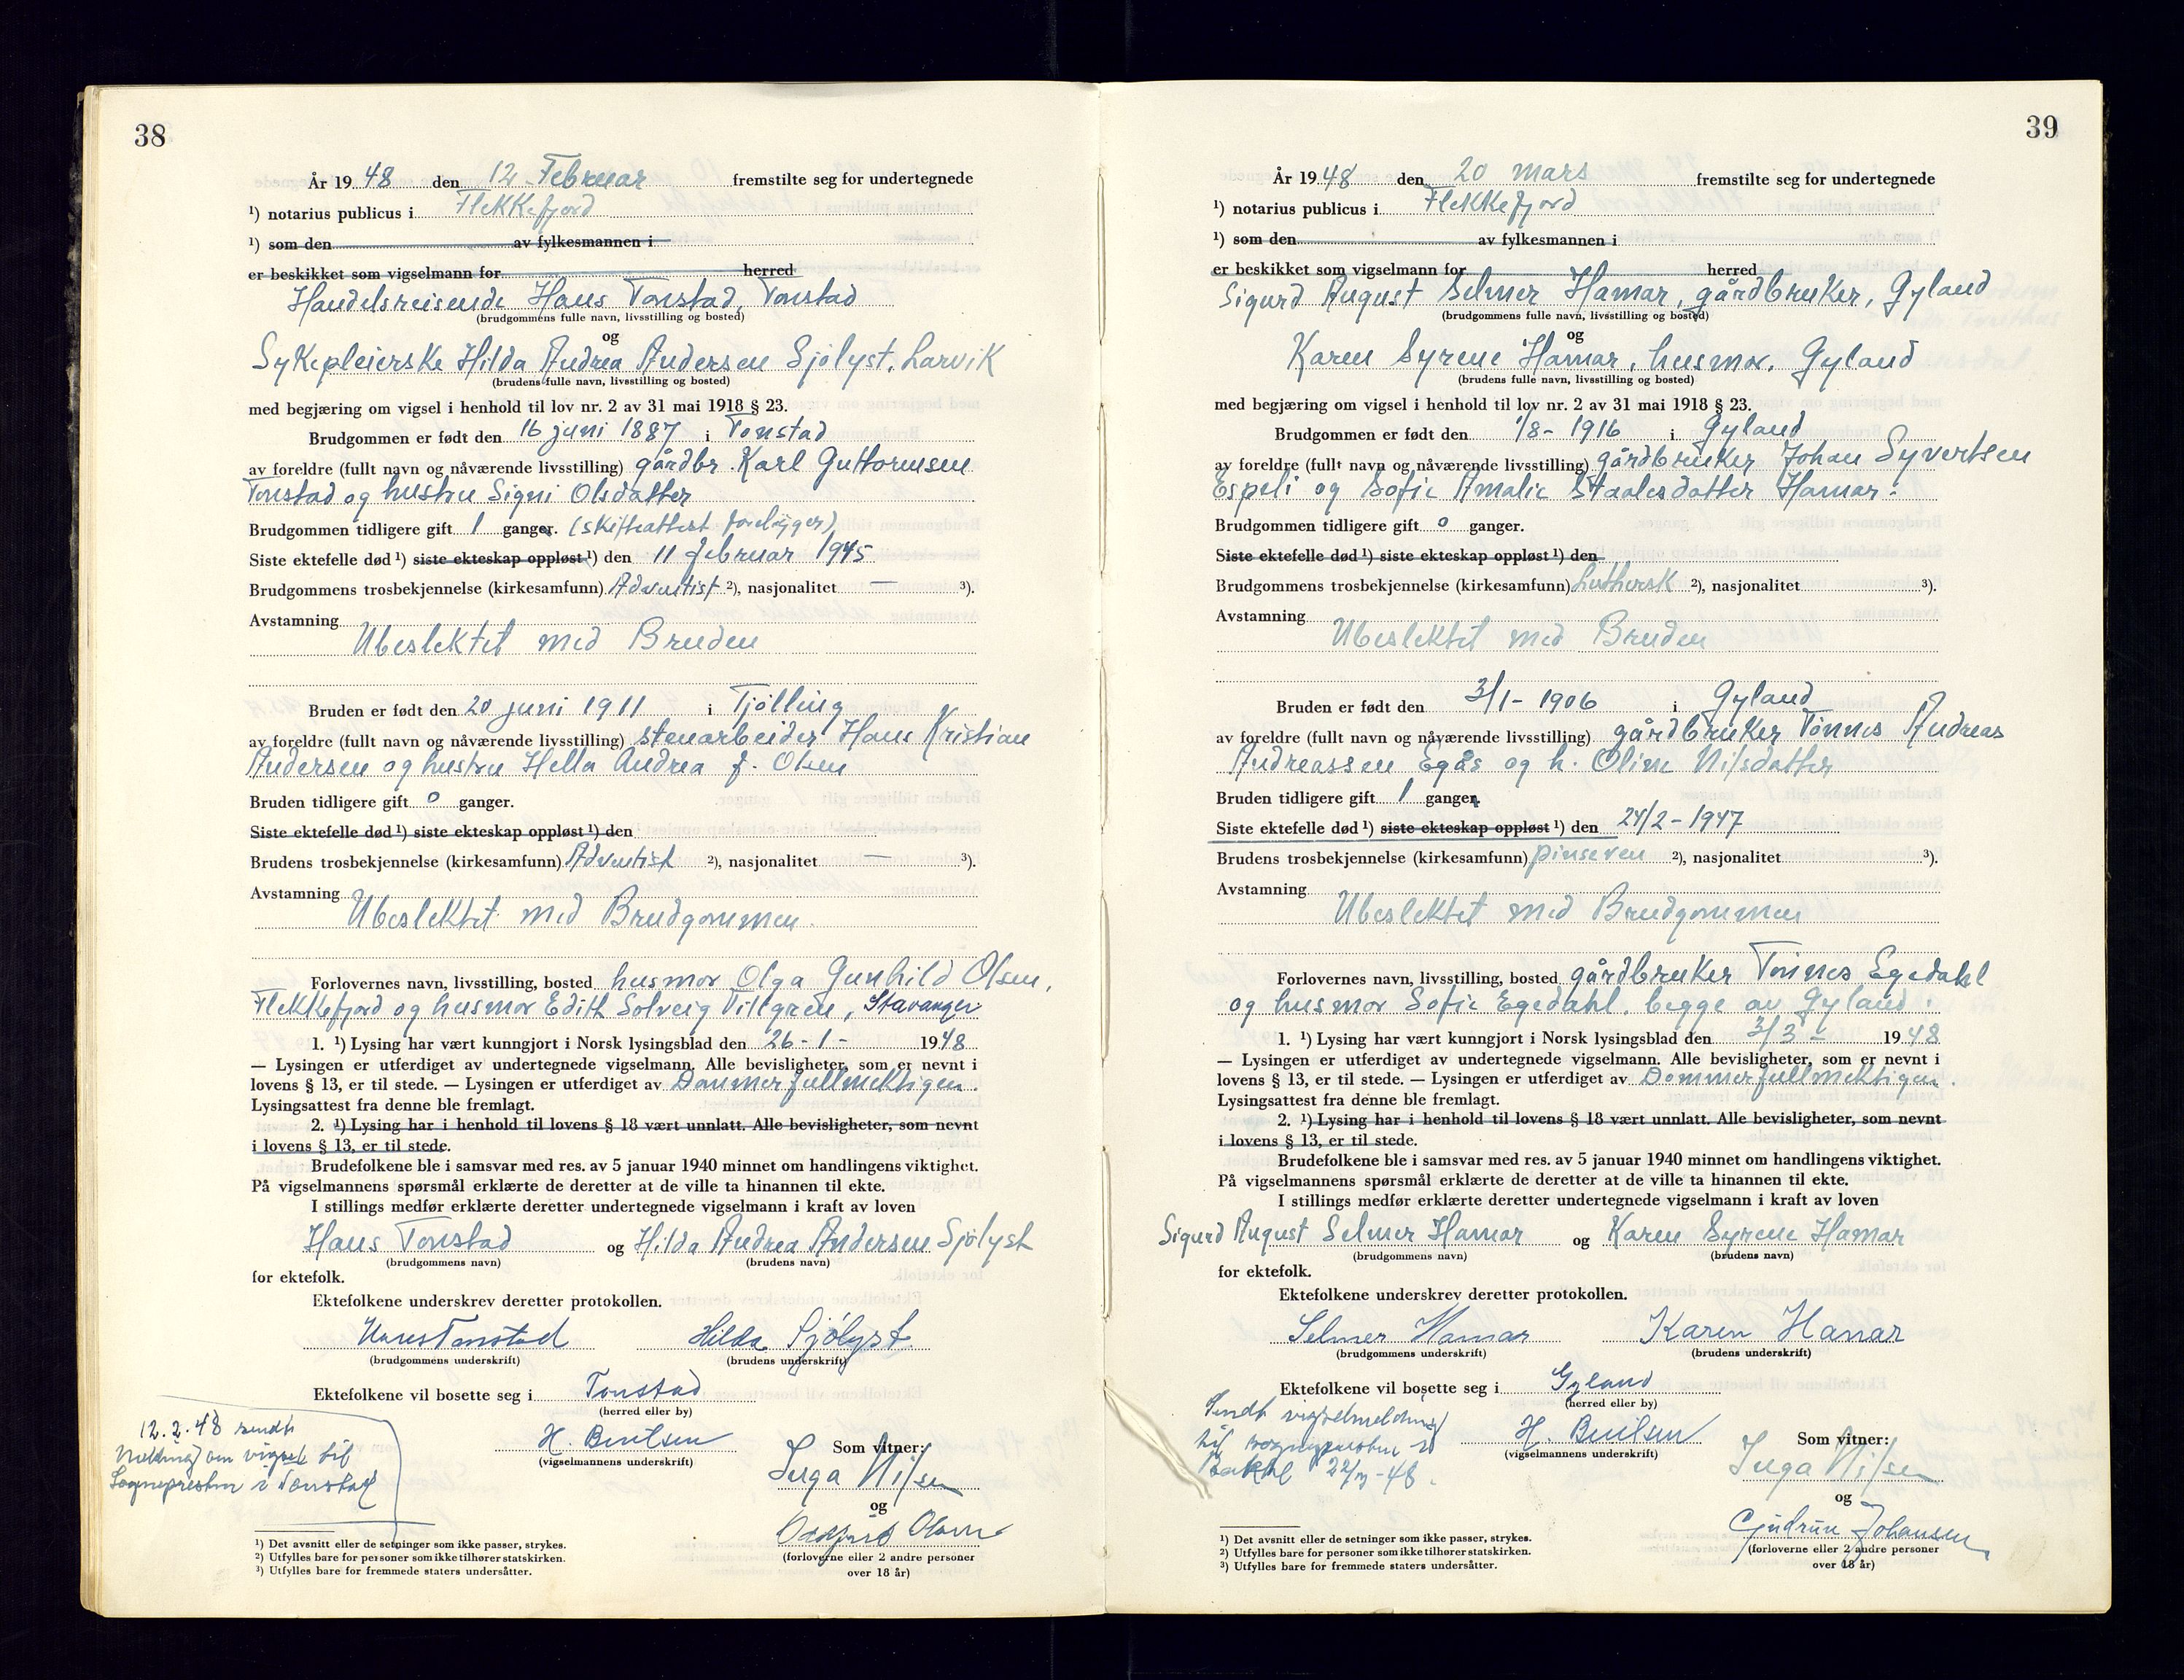 38
År 1948 den 12 Februar fremstilte seg for undertegnede
¹) notarius publicus i Flekkefjord
¹) som den av fylkesmannen i
er beskikket som vigselmann for herred
Handelsreisende Hans Tonstad, Tonstad
(brudgommens fulle navn, livsstilling og bosted)
og
Sykepleierske Hilda Andrea Andersen Sjølyst, Larvik
(brudens fulle navn, livsstilling og bosted)
med begjæring om vigsel i henhold til lov nr. 2 av 31 mai 1918 § 23.
Brudgommen er født den 16 juni 1887 i Tonstad
av foreldre (fullt navn og nåværende livsstilling) gårdbr. Karl Guttormsen
Tonstad og hustru Signi Olsdatter
Brudgommen tidligere gift 1 ganger. (skifteattest foreligger)
Siste ektefelle død ¹) siste ekteskap oppløst ¹) den 11 februar 1945
Brudgommens trosbekjennelse (kirkesamfunn) Adventist ²), nasjonalitet — ³).
Avstamning
Ubeslektet med Bruden
Bruden er født den 20 juni 1911 i Tjølling
av foreldre (fullt navn og nåværende livsstilling) stenarbeider Hans Kristian
Andersen og hustru Hella Andrea f. Olsen
Bruden tidligere gift 0 ganger.
Siste ektefelle død ¹) siste ekteskap oppløst ¹) den
Brudens trosbekjennelse (kirkesamfunn) Adventist ²), nasjonalitet — ³).
Avstamning
Ubeslektet med Brudgommen.
Forlovernes navn, livsstilling, bosted husmor Olga Gunhild Olsen,
Flekkefjord og husmor Edith Solveig Villgren, Stavanger
1. ¹) Lysing har vært kunngjort i Norsk lysingsblad den 26 - 1 - 1948
— Lysingen er utferdiget av undertegnede vigselmann. Alle bevisligheter, som er nevnt i
lovens § 13, er til stede. — Lysingen er utferdiget av Dommerfullmektigen.
Lysingsattest fra denne ble fremlagt.
2. ¹) Lysing har i henhold til lovens § 18 vært unnlatt. Alle bevisligheter, som nevnt
i lovens § 13, er til stede.
Brudefolkene ble i samsvar med res. av 5 januar 1940 minnet om handlingens viktighet.
På vigselmannens spørsmål erklærte de deretter at de ville ta hinannen til ekte.
I stillings medfør erklærte deretter undertegnede vigselmann i kraft av loven
Hans Tonstad og Hilda Andrea Andersen Sjølyst
(brudgommens navn) (brudens navn)
for ektefolk.
Ektefolkene underskrev deretter protokollen.
Hans Tonstad Hilda Sjølyst
(brudgommens underskrift) (brudens underskrift)
Ektefolkene vil bosette seg i Tonstad
(herred eller by)
12.2.48 sendt
melding om vigsel til
Sognepresten i Tonstad
H. Bentsen
(vigselmannens underskrift)
Som vitner:
Inga Nilsen
og
Olsen
(forloverne eller 2 andre personer
over 18 år)
¹) Det avsnitt eller de setninger som ikke passer, strykes.
²) Utfylles bare for personer som ikke tilhører statskirken.
³) Utfylles bare for fremmede staters undersåtter.
39
År 1948 den 20 mars fremstilte seg for undertegnede
¹) notarius publicus i Flekkefjord
¹) som den av fylkesmannen i
er beskikket som vigselmann for herred
Sigurd August Selmer Hamar, gårdbruker, Gyland
(brudgommens fulle navn, livsstilling og bosted)
og
Karen Syrene Hamar, husmor, Gyland
(brudens fulle navn, livsstilling og bosted)
med begjæring om vigsel i henhold til lov nr. 2 av 31 mai 1918 § 23.
Brudgommen er født den 1/8 - 1916 i Gyland
av foreldre (fullt navn og nåværende livsstilling) gårdbruker Johan Syvertsen
Espeli og Sofie Amalie Staalesdatter Hamar.
Brudgommen tidligere gift 0 ganger.
Siste ektefelle død ¹) siste ekteskap oppløst ¹) den
Brudgommens trosbekjennelse (kirkesamfunn) Luthersk ²), nasjonalitet ³).
Avstamning
Ubeslektet med Bruden
Bruden er født den 3/1 - 1906 i Gyland
av foreldre (fullt navn og nåværende livsstilling) gårdbruker Tønnes Andreas
Andreassen Egås og h. Oline Nilsdatter
Bruden tidligere gift 1 ganger.
Siste ektefelle død ¹) siste ekteskap oppløst ¹) den 24/2 - 1947
Brudens trosbekjennelse (kirkesamfunn) pinseven ²), nasjonalitet ³).
Avstamning
Ubeslektet med Brudgommen
Forlovernes navn, livsstilling, bosted gårdbruker Tønnes Egedahl
og husmor Sofie Egedahl, begge av Gyland.
1. ¹) Lysing har vært kunngjort i Norsk lysingsblad den 3/3 - 1948
— Lysingen er utferdiget av undertegnede vigselmann. Alle bevisligheter, som er nevnt i
lovens § 13, er til stede. — Lysingen er utferdiget av Dommerfullmektigen.
Lysingsattest fra denne ble fremlagt.
2. ¹) Lysing har i henhold til lovens § 18 vært unnlatt. Alle bevisligheter, som nevnt
i lovens § 13, er til stede.
Brudefolkene ble i samsvar med res. av 5 januar 1940 minnet om handlingens viktighet.
På vigselmannens spørsmål erklærte de deretter at de ville ta hinannen til ekte.
I stillings medfør erklærte deretter undertegnede vigselmann i kraft av loven
Sigurd August Selmer Hamar og Karen Syrene Hamar
(brudgommens navn) (brudens navn)
for ektefolk.
Ektefolkene underskrev deretter protokollen.
Selmer Hamar Karen Hamar
(brudgommens underskrift) (brudens underskrift)
Ektefolkene vil bosette seg i Gyland
(herred eller by)
Sendt vigselmelding
til sognepresten i
Bakke 22/3 - 48.
H. Bentsen
(vigselmannens underskrift)
Som vitner:
Inga Nilsen
og
Gudrun Johansen
(forloverne eller 2 andre personer
over 18 år)
¹) Det avsnitt eller de setninger som ikke passer, strykes.
²) Utfylles bare for personer som ikke tilhører statskirken.
³) Utfylles bare for fremmede staters undersåtter.